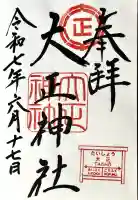 奉拝
正
大正神社
令和七年六月十七日
たいしょう
大正
TAISHO